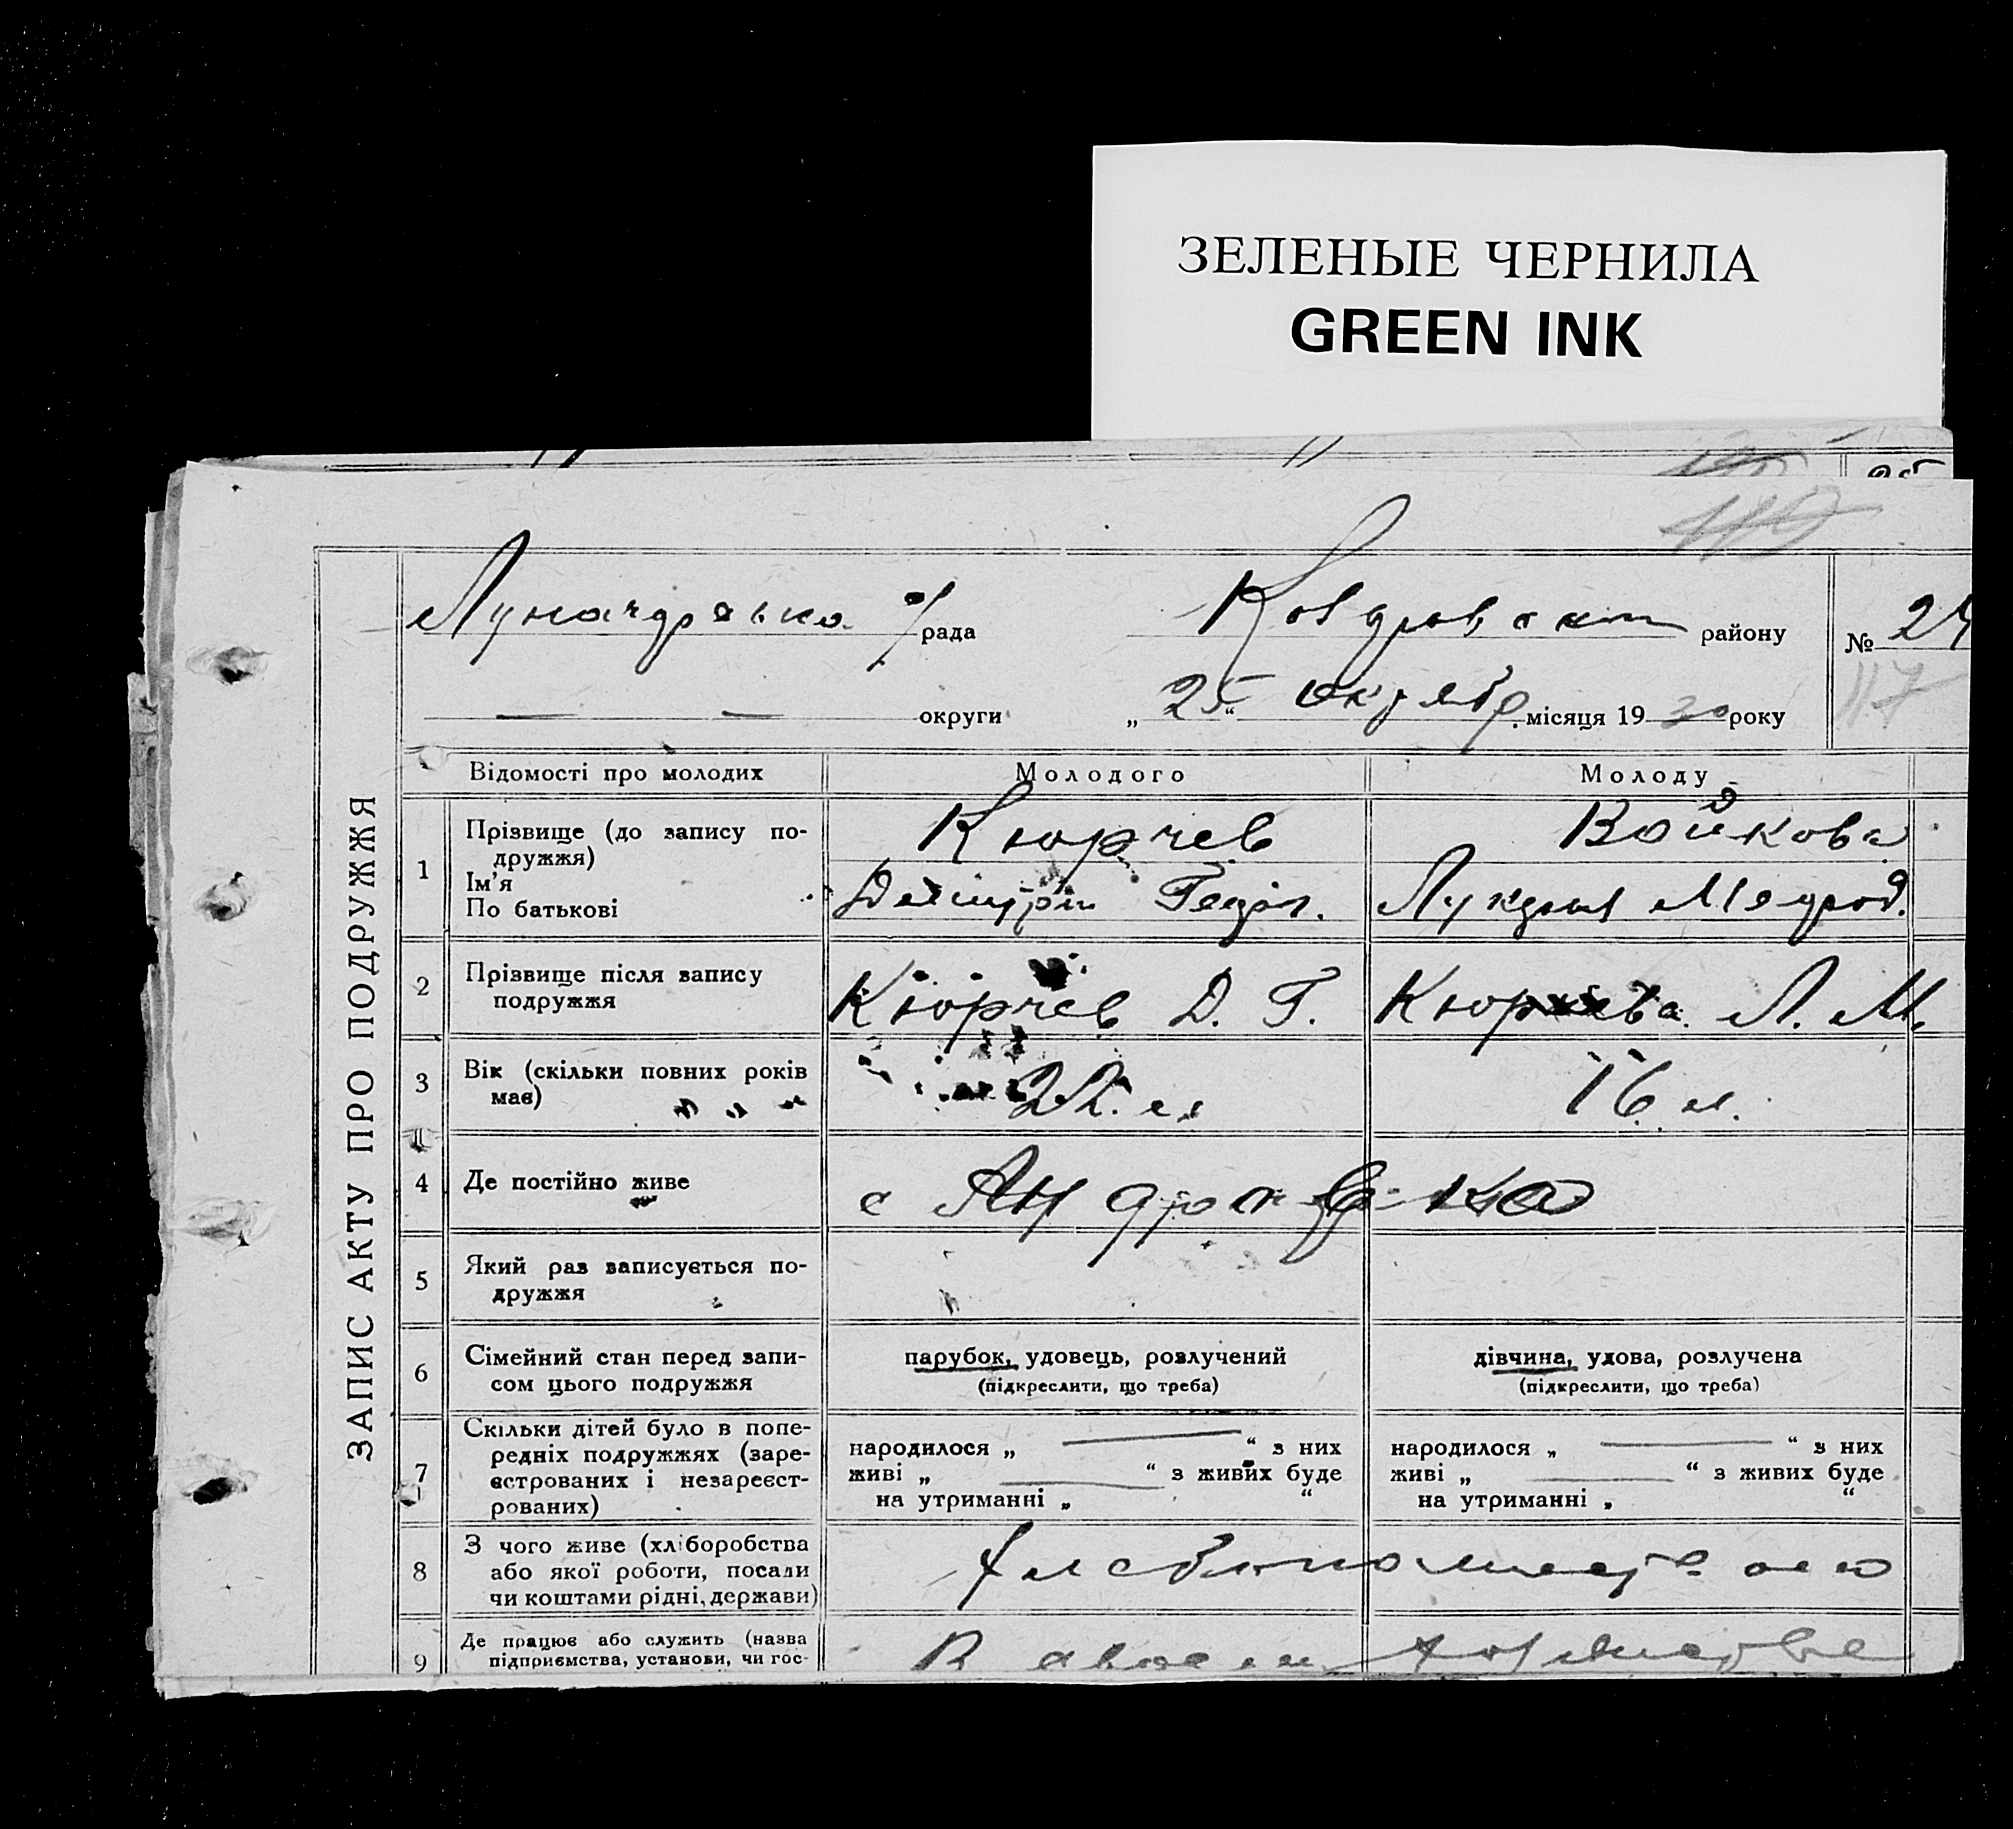 ЗЕЛЕНЫЕ ЧЕРНИЛА
GREEN INK
ЗАПИС АКТУ ПРО ПОДРУЖЖЯ
рада
району
№ 24
117
округи
„ 25 “ октябр. місяця 19 30 року
Відомості про молодих
Молодого
Молоду
1
Прізвище (до запису по-
дружжя)
Ім’я
По батькові
Кюрчев
Войкова
2
Прізвище після запису
подружжя
Кюрчев Д. Г.
Кюрчева Л. М.
3
Вік (скільки повних років
має)
22 л
16 л.
4
Де постійно живе
с Андровка
5
Який раз записується по-
дружжя
6
Сімейний стан перед запи-
сом цього подружжя
парубок, удовець, розлучений
(підкреслити, що треба)
дівчина, удова, розлучена
(підкреслити, що треба)
7
Скільки дітей було в попе-
редніх подружжях (заре-
єстрованих і незареєст-
рованих)
народилося „ “ з них
живі „ “ з живих буде
на утриманні „ “
народилося „ “ з них
живі „ “ з живих буде
на утриманні „ “
8
З чого живе (хліборобства
або якої роботи, посади
чи коштами рідні, держави)
9
Де працює або служить (назва
підприємства, установи, чи гос-